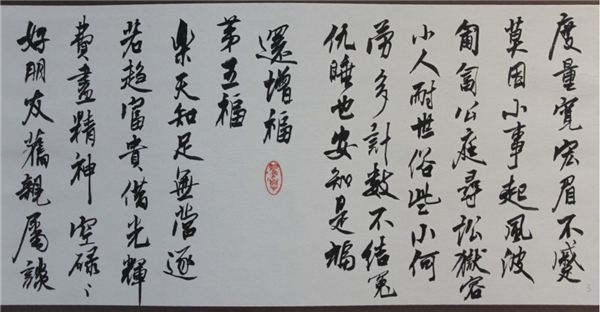 度量寬宏眉不蹙
莫因小事起風波
匍匐公庭尋訟獄容
小人耐世俗些小何
勞多計數不結冤
仇睡也安知是福
還增福
第五福
樂天知足無營逐
若趨富貴借光輝
費盡精神空碌々
好朋友舊親屬談